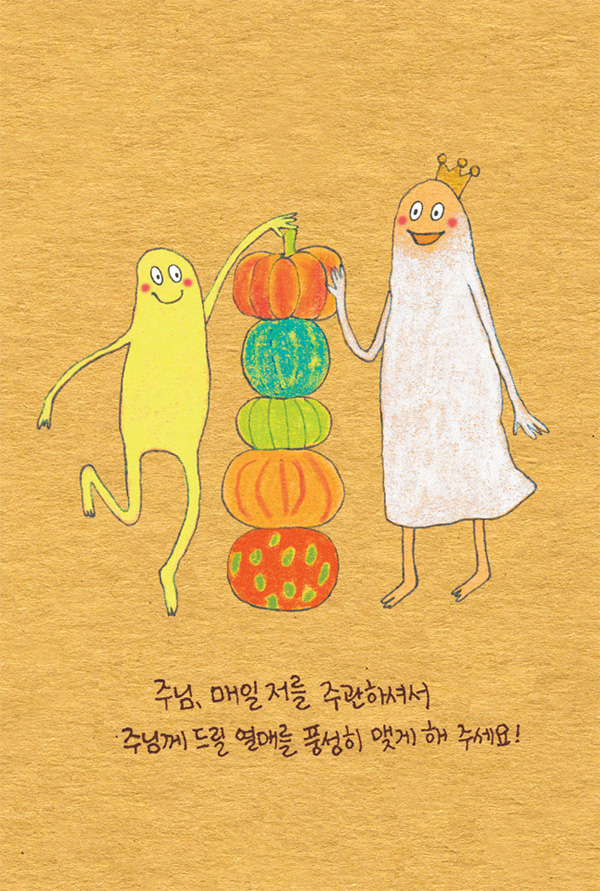 주님, 매일 저를 주관하셔서
주님께 드릴 열매를 풍성히 맺게 해 주세요!